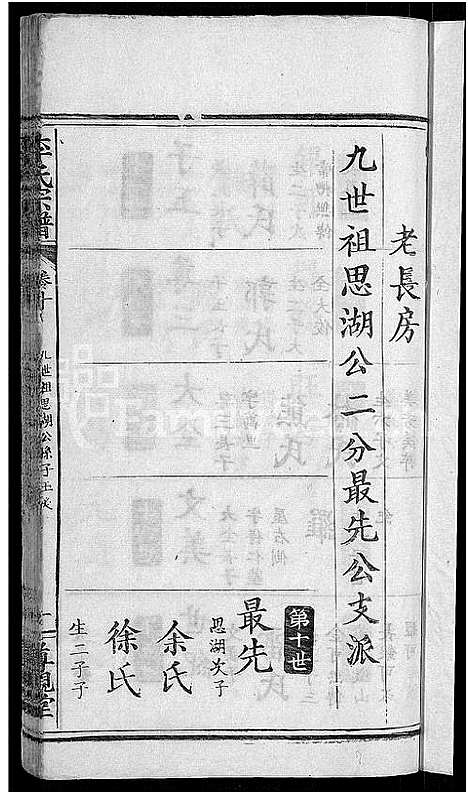 老長房
九世祖思湖公二分最先公支派
第十世
最先
思湖次子
余氏
徐氏
生二子子
李氏宗譜
卷十
九世祖思湖公孫子王